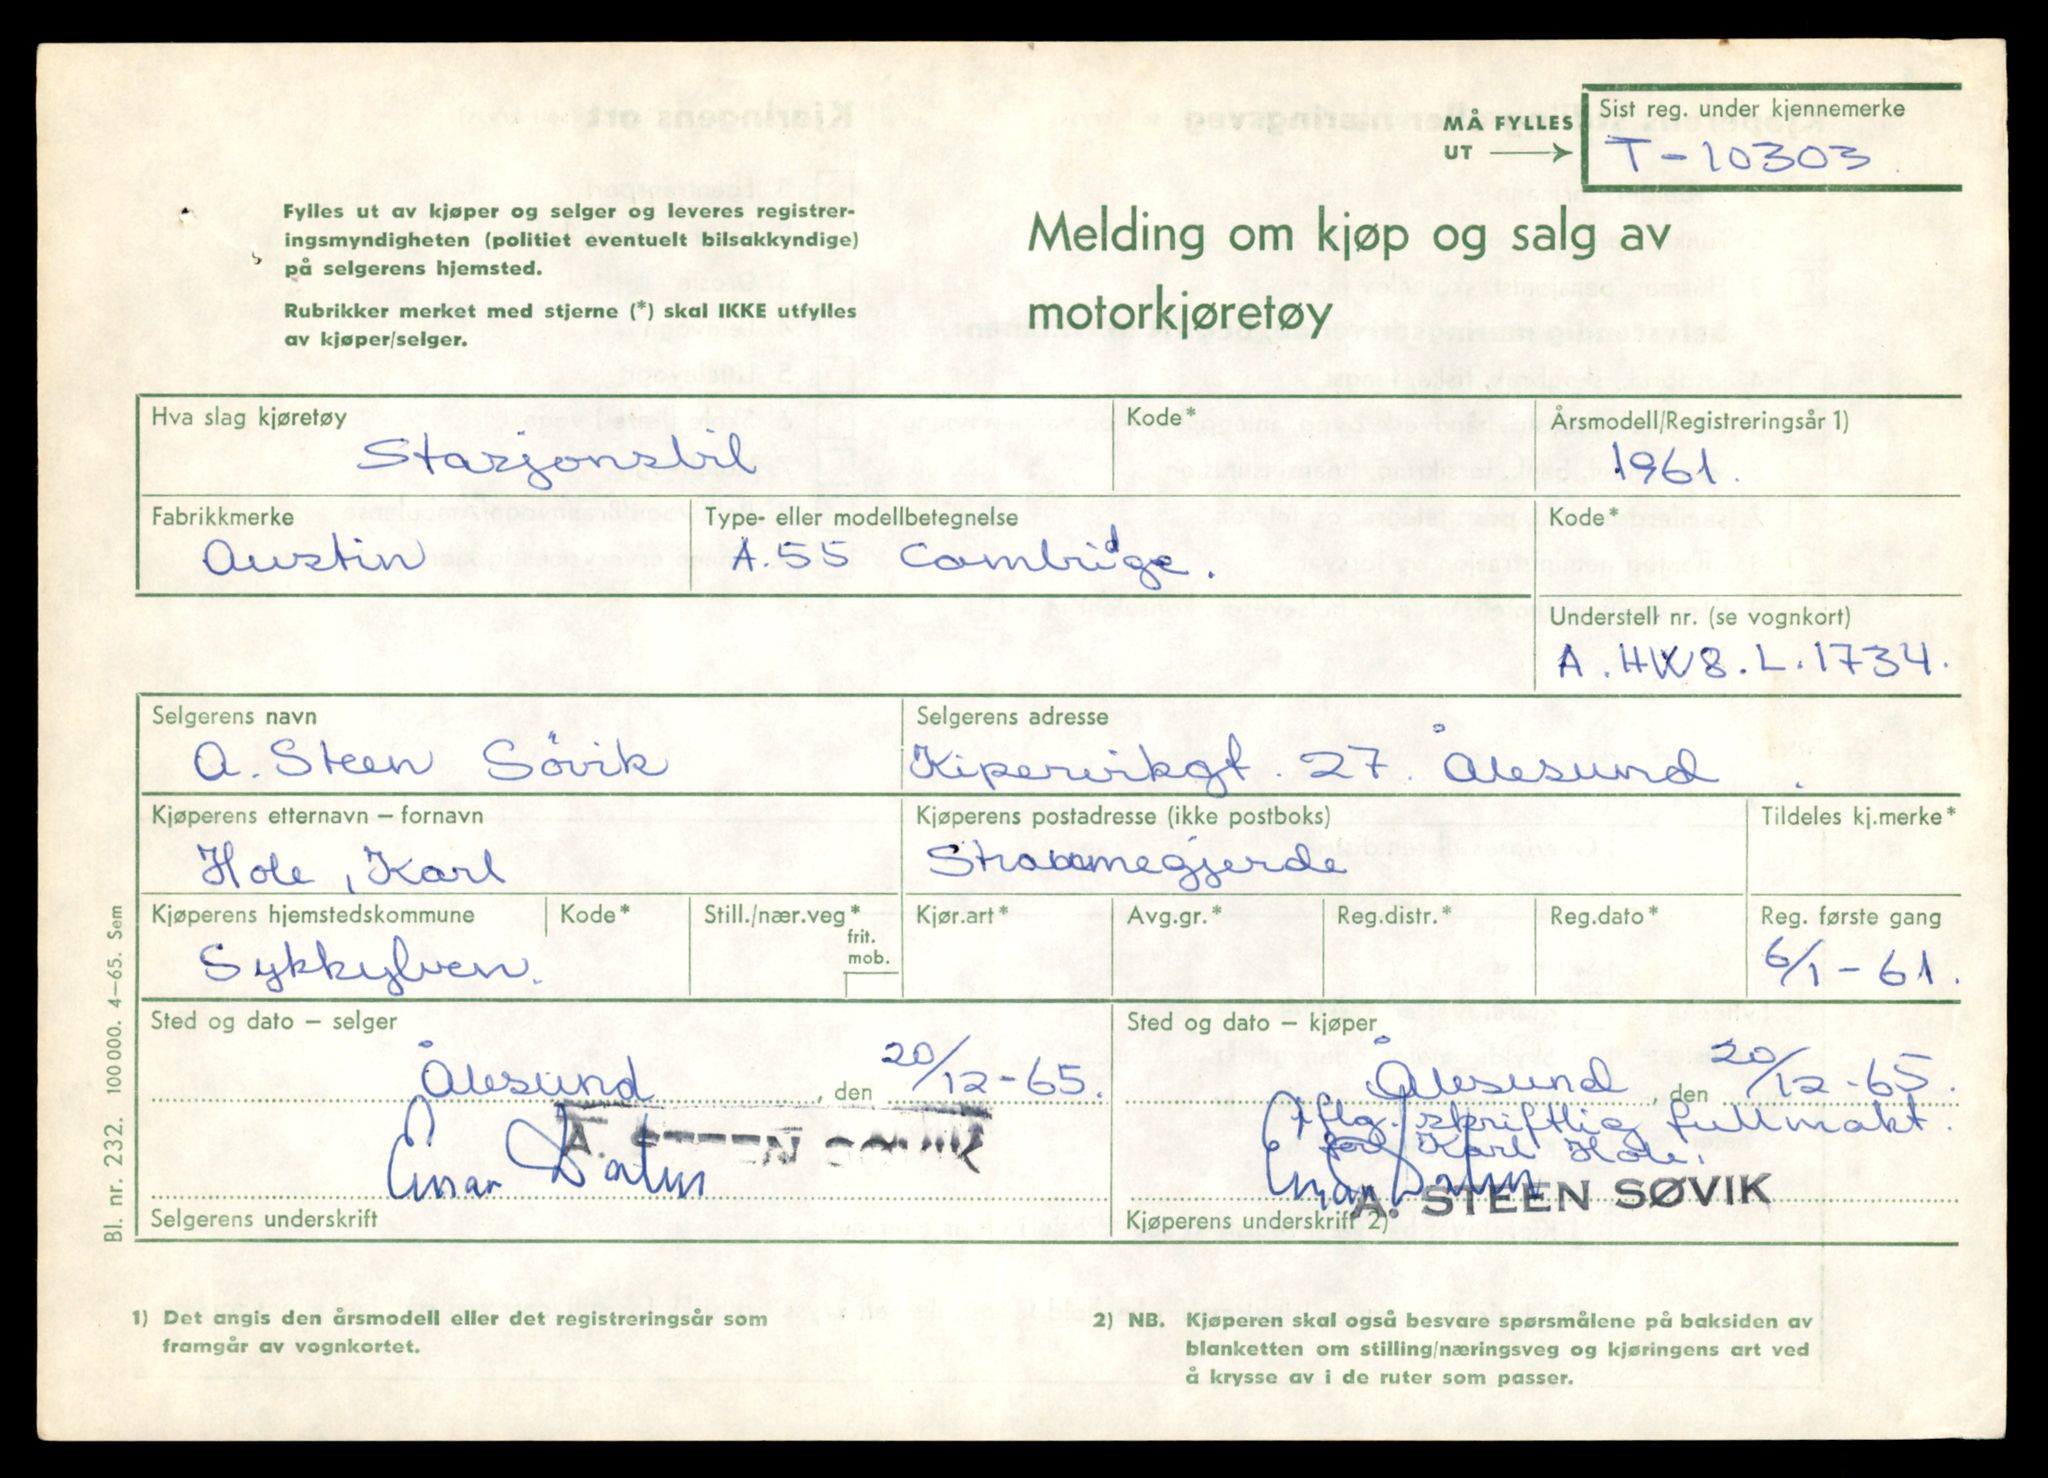 MÅ FYLLES
UT
Sist reg. under kjennemerke
T-10303
Fylles ut av kjøper og selger og leveres registrer-
ingsmyndigheten (politiet eventuelt bilsakkyndige)
på selgerens hjemsted.
Rubrikker merket med stjerne (*) skal IKKE utfylles
av kjøper/selger.
Melding om kjøp og salg av
motorkjøretøy
Hva slag kjøretøy
Kode*
Årsmodell/Registreringsår 1)
Stasjonsbil
1961.
Fabrikkmerke
Type- eller modellbetegnelse
Kode*
Austin
A.55 Cambridge.
Understell nr. (se vognkort)
A.HW8.L.1734.
Selgerens navn
Selgerens adresse
A. Steen Søvik
Kipervikgt. 27. Ålesund.
Kjøperens etternavn – fornavn
Kjøperens postadresse (ikke postboks)
Tildeles kj.merke*
Hole, Karl
Straumegjerde
Kjøperens hjemstedskommune
Kode*
Still./nær.veg*
frit.
mob.
Kjør.art*
Avg.gr.*
Reg.distr.*
Reg.dato*
Reg. første gang
Sykkylven.
6/1-61.
Sted og dato – selger
Sted og dato – kjøper
Ålesund, den 20/12-65.
Ålesund, den 20/12-65.
A. STEEN SØVIK
Einar
iflg. skriftlig fullmakt.
for Karl Hole.
Einar
A. STEEN SØVIK
Selgerens underskrift
Kjøperens underskrift 2)
Bl. nr. 232. 100 000. 4–65. Sem
1) Det angis den årsmodell eller det registreringsår som
framgår av vognkortet.
2) NB. Kjøperen skal også besvare spørsmålene på baksiden av
blanketten om stilling/næringsveg og kjøringens art ved
å krysse av i de ruter som passer.